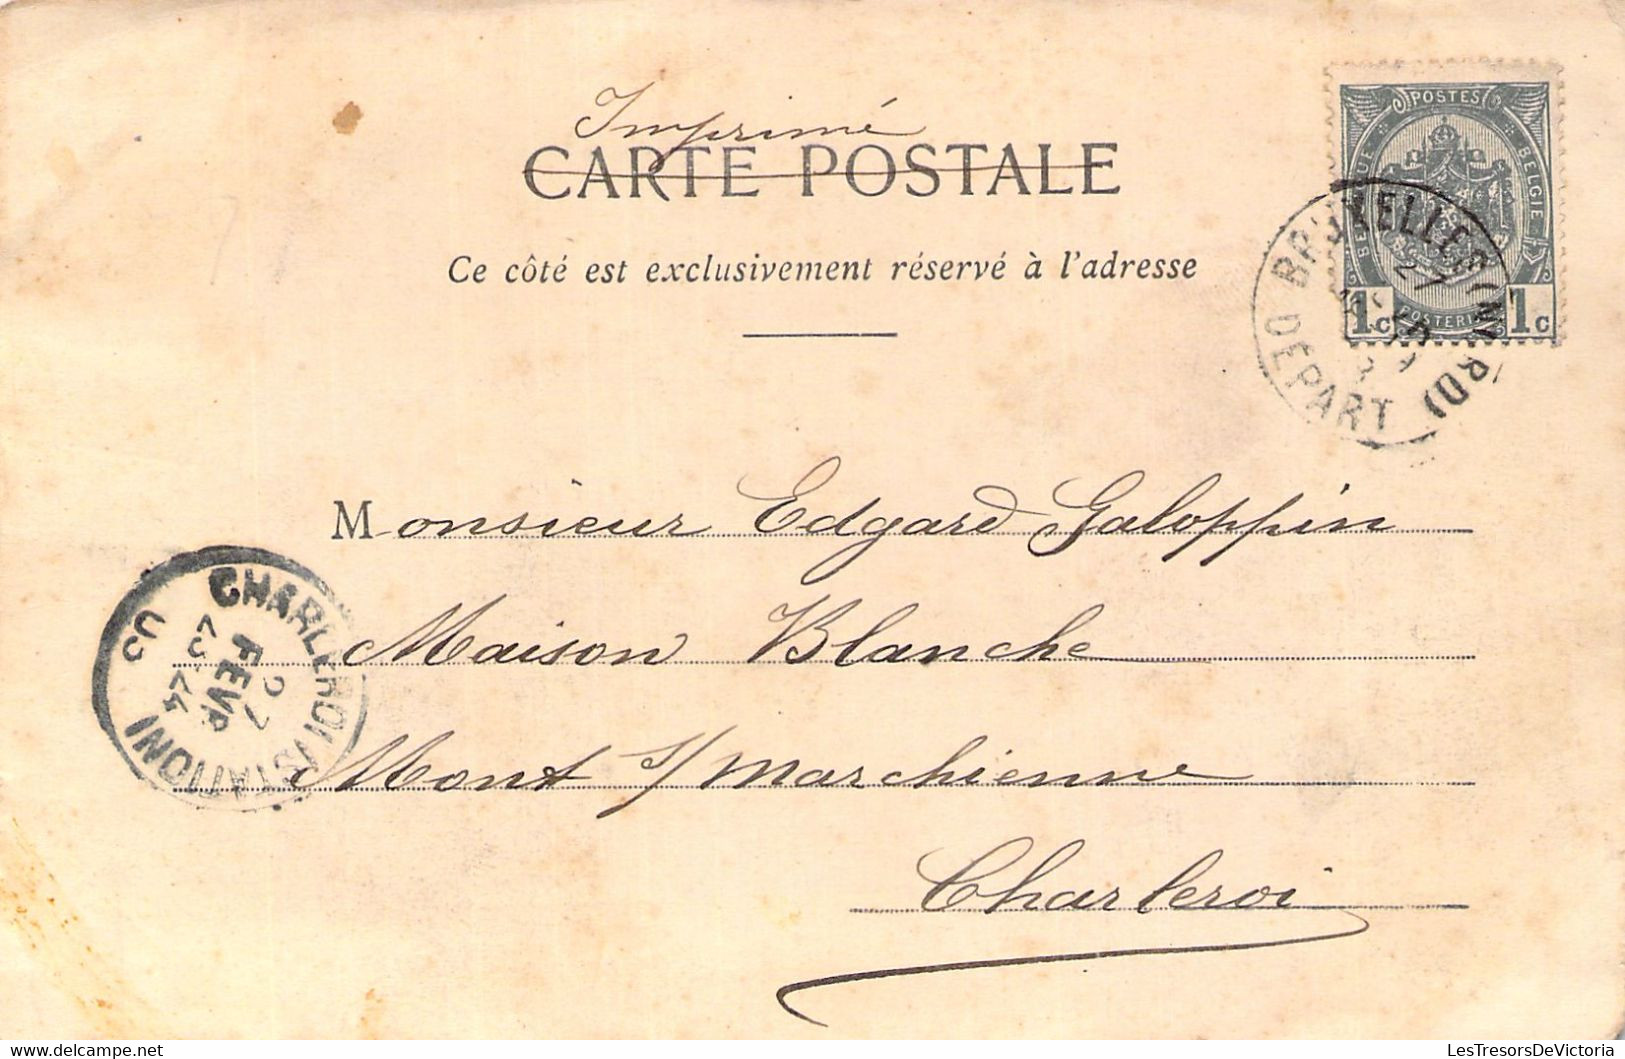 Imprimé
CARTE POSTALE
Ce côté est exclusivement réservé à l'adresse
POSTES
BELGIQUE BELGIË
POSTERIJEN
1c 1c
BRUXELLES (NORD)
DÉPART
Monsieur Edgard Galoppin
Maison Blanche
Mont s/ Marchienne
Charleroi
CHARLEROI (STATION)
27
FEVR
LesTresorsDeVictoria